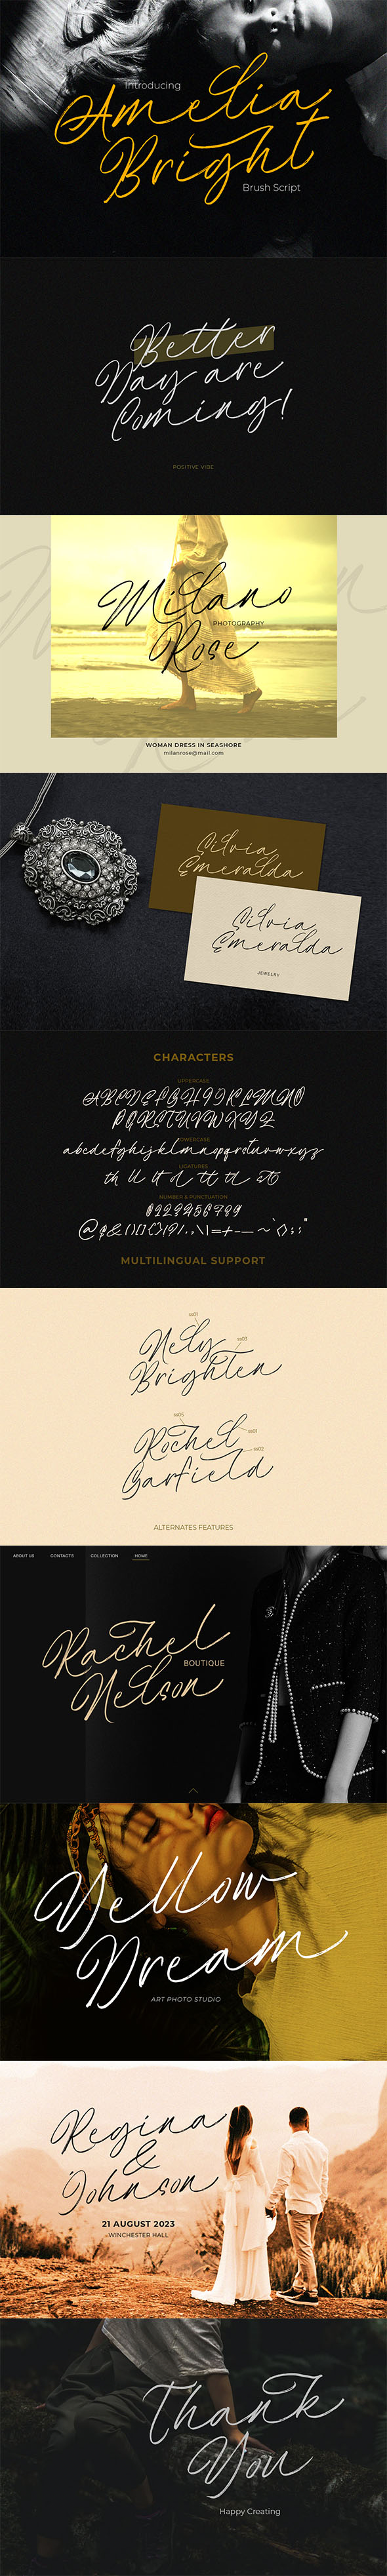 Introducing
Amelia
Bright
Brush Script
Better
Day are
Coming!
POSITIVE VIBE
Milano
PHOTOGRAPHY
Rose
WOMAN DRESS IN SEASHORE
milanrose@mail.com
Silvia
Emeralda
Silvia
Emeralda
JEWELRY
CHARACTERS
UPPERCASE
ABCDEFGHIJKLMNO
PQRSTUVWXYZ
LOWERCASE
abcdefghijklmnopqrstuvwxyz
LIGATURES
NUMBER & PUNCTUATION
0123456789
MULTILINGUAL SUPPORT
ss01
Nely
ss03
Brighten
ss05
Rachel
ss01
ss02
Garfield
ALTERNATES FEATURES
ABOUT US CONTACTS COLLECTION HOME
Rachel
BOUTIQUE
Nelson
Yellow
Dream
ART PHOTO STUDIO
Regina
&
Johnson
21 AUGUST 2023
WINCHESTER HALL
Thank
You
Happy Creating